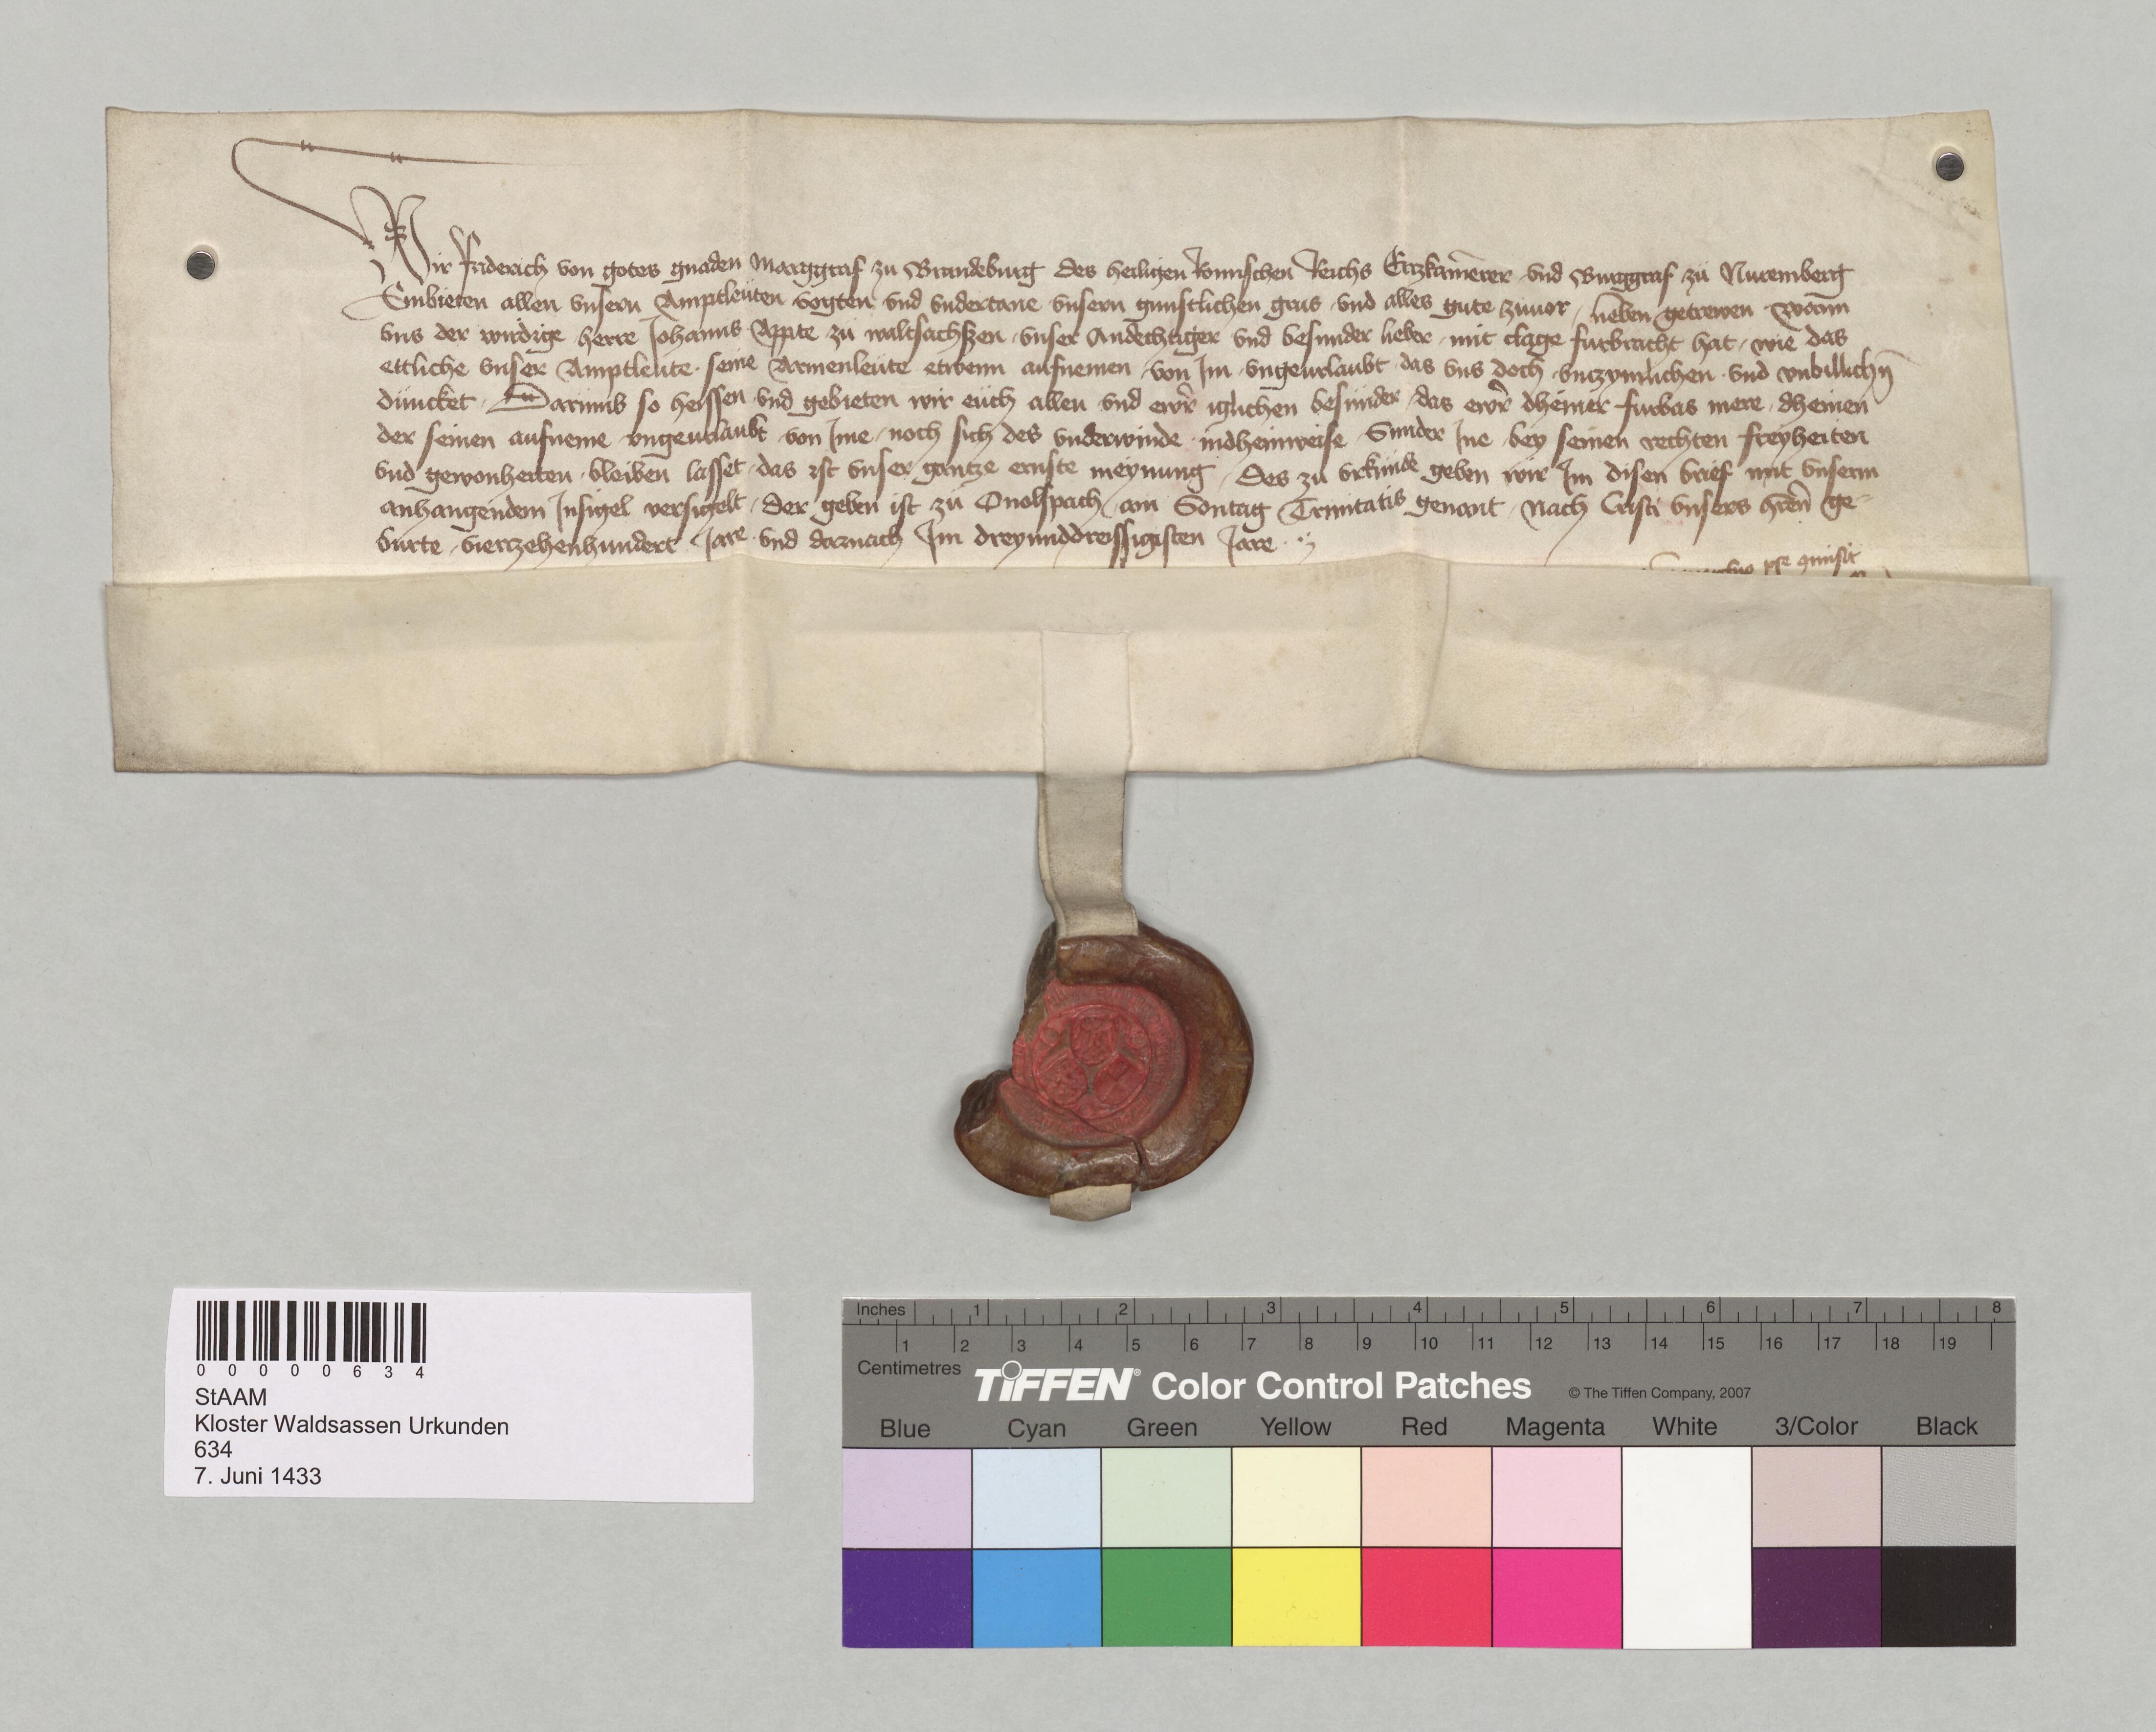 Wir Friderich von gotes gnaden Marggraf zu Brandeburg des heiligen Romischen Reichs Ertzkamerer vnd Burggraf zu Nuremberg
Embieten allen vnsern Amptleuten vogten vnd vndertane vnsern gunstlichen grus vnd alles gute zuuor lieben getrewen Wann
vns der wirdige herre Johanns Appte zu waltsachssen vnser Andechtiger vnd besunder lieber mit clage furbracht hat wie das
ettliche vnser Amptleute seine Armenleute etwenn aufnemen von Im vngeurlaubt das vns doch vnzymlichen vnd vnbillichn
duncket Darumb so heissen vnd gebieten wir euch allen vnd ewr iglichen besunder das ewr dheiner furbas mere dheinen
der seinen aufneme vngeurlaubt von Ime noch sich des vnderwinde indheinweise Sunder Ine bey seinen rechten freyheiten
vnd gewonheiten bleiben lasset das ist vnser gantze ernste meynung Des zu vrkunde geben wir Im disen brief mit vnserm
anhangendem Insigel versigelt der geben ist zu Onolspach am Sontag Trinitatis genant Nach Cristi vnsers hren ge-
burte vierzehenhundert Jare vnd darnach Im dreyunddreissigisten Jare
0 0 0 0 0 6 3 4
StAAM
Kloster Waldsassen Urkunden
634
7. Juni 1433
Inches 1 2 3 4 5 6 7 8
1 2 3 4 5 6 7 8 9 10 11 12 13 14 15 16 17 18 19
Centimetres
TIFFEN® Color Control Patches © The Tiffen Company, 2007
Blue Cyan Green Yellow Red Magenta White 3/Color Black